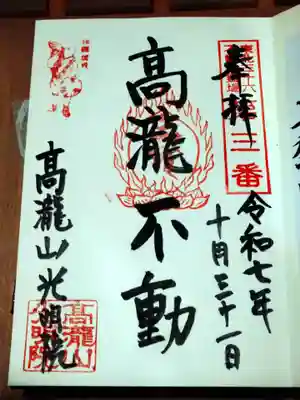 奉拝
三番
令和七年
十月三十一日
高瀧不動
高瀧山光明院
高瀧山
光明院